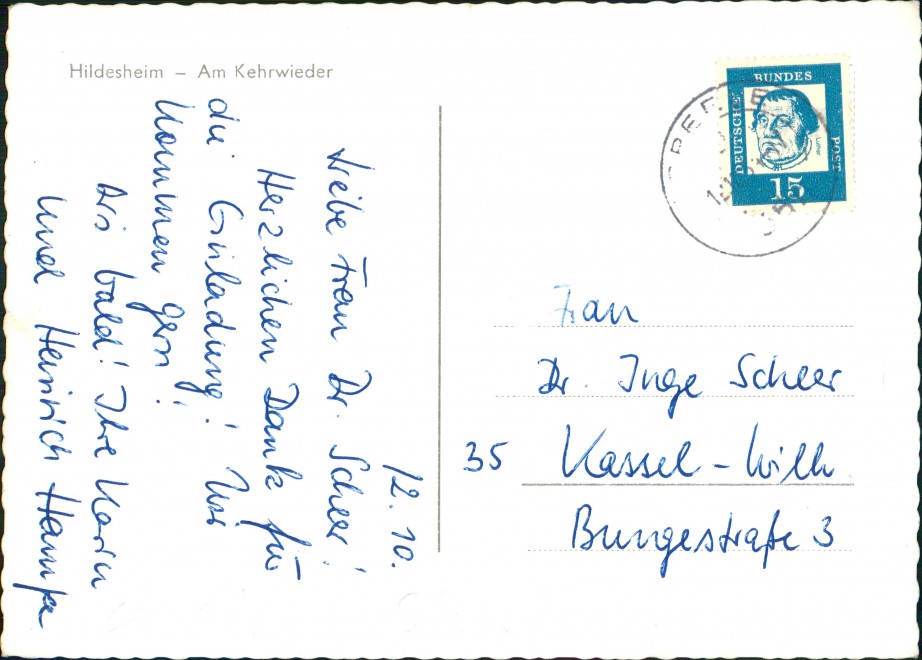 Hildesheim – Am Kehrwieder
12. 10.
Liebe Frau Dr. Scheer!
Herzlichen Dank für
die Einladung! Wir
kommen gern!
Bis bald! Ihre Karin
und Heinrich Hampe
DEUTSCHE
BUNDES
POST
Luther
15
Frau
Dr. Inge Scheer
35 Kassel-Wilh.
Bungestraße 3